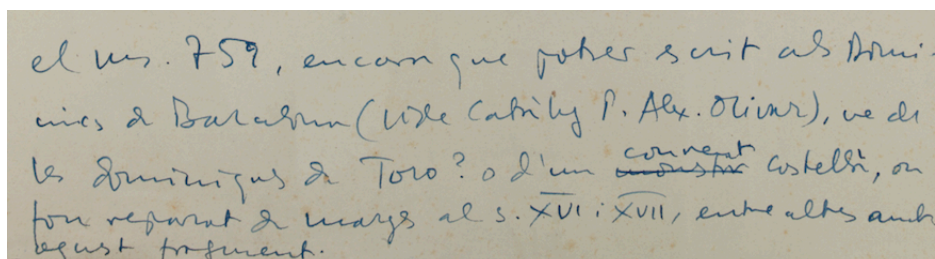 el ms. 759, encara que potser escrit als Domi-
nics de Barcelona (vide Catàleg P. Alex. Olivar), ve de
les dominiques de Toro? o d'un convent castellà, on
fou reparat de marges al s. XVI i XVII, entre altres amb
aquest fragment.